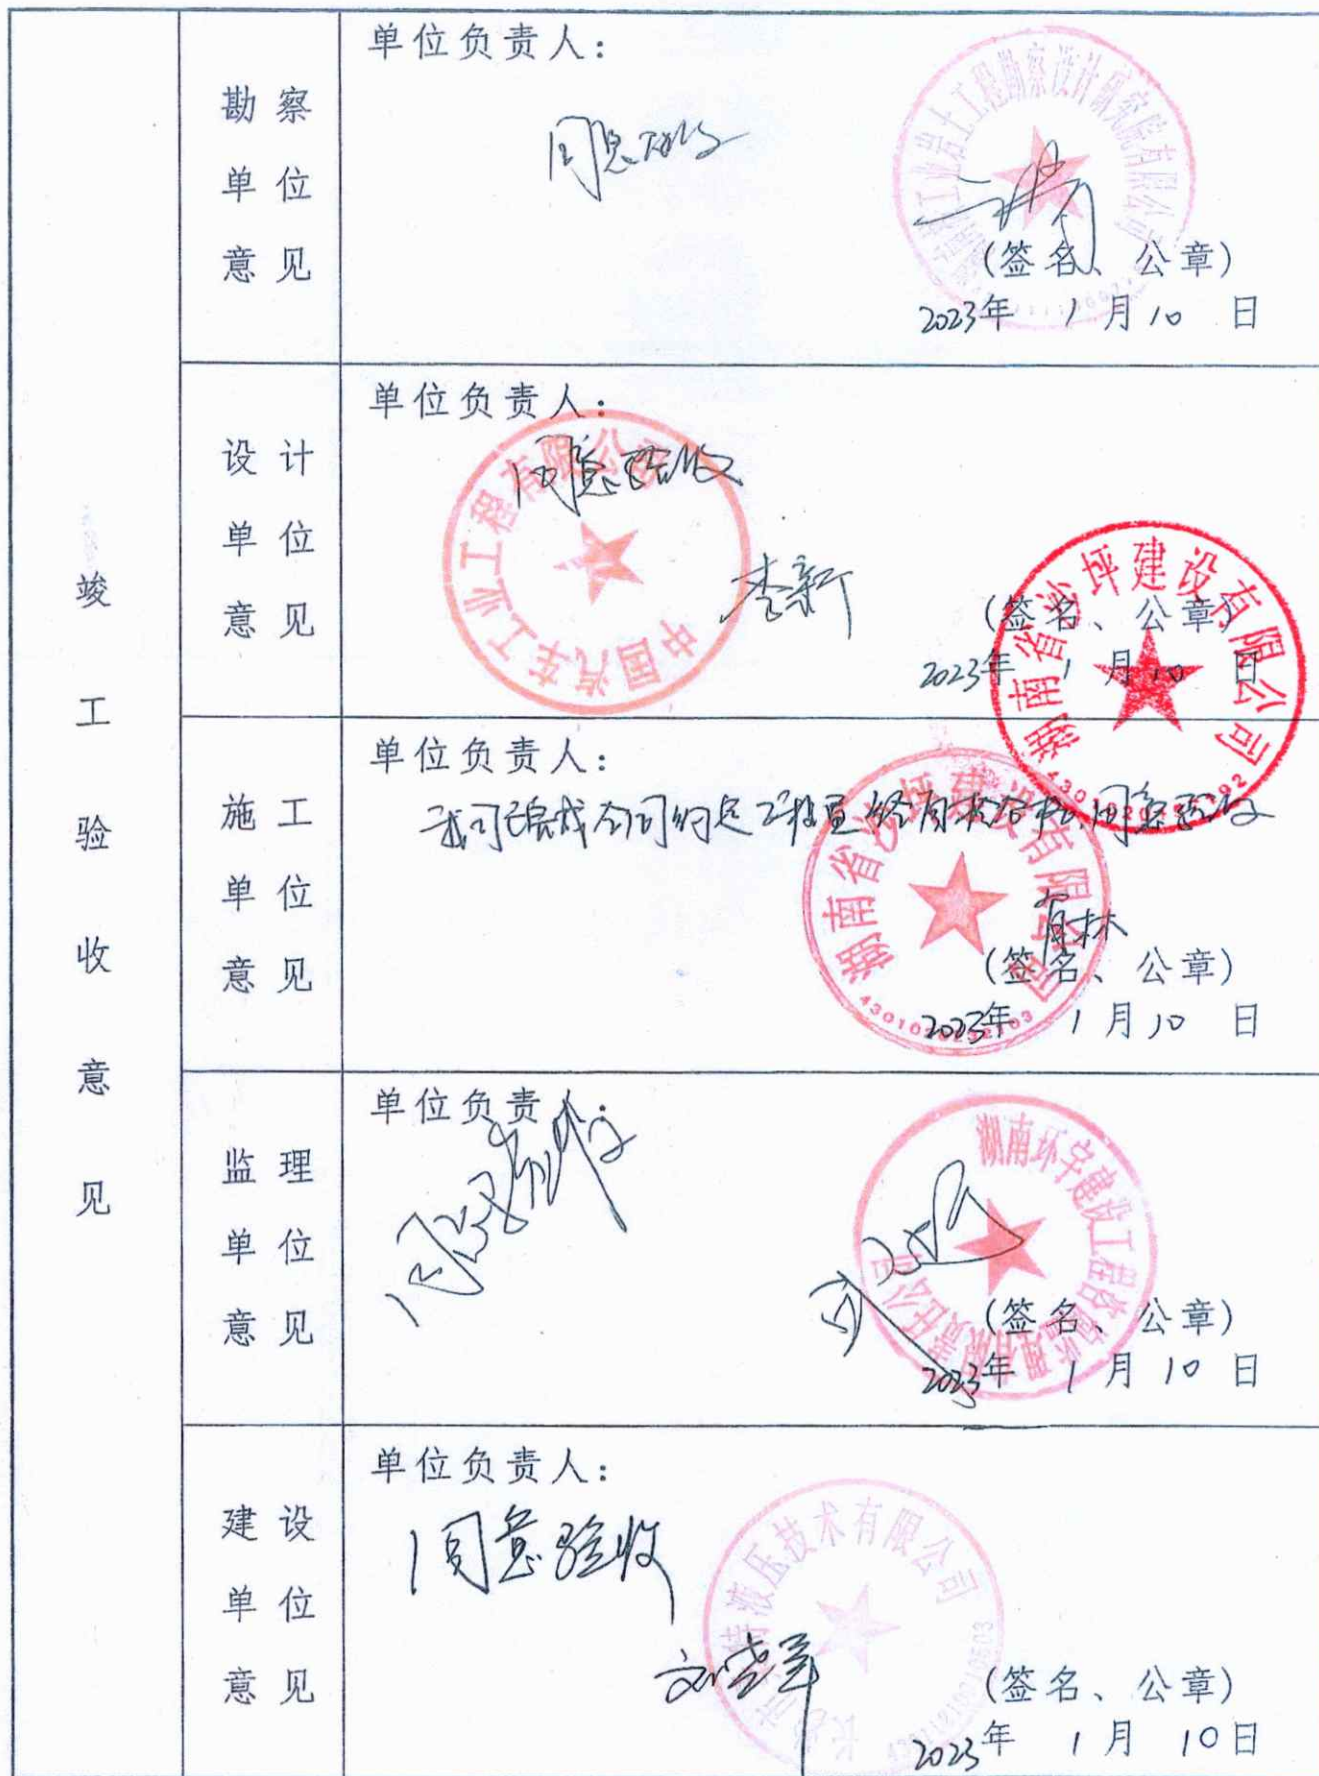 竣工验收意见
勘察单位意见
单位负责人：
同意验收
工业岩土工程勘察设计研究院有限公司
(签名、公章)
2023年 1月10日
设计单位意见
单位负责人：
同意验收
中国汽车工业工程有限公司
李新
湖南省沙坪建设有限公司
(签名、公章)
2023年 1月10日
施工单位意见
单位负责人：
我司已完成合同约定工程量 经自检合格，同意验收
湖南省沙坪建设有限公司
(签名、公章)
2023年 1月10日
监理单位意见
单位负责人：
同意验收
湖南环宇建设工程咨询监理有限责任公司
(签名、公章)
2023年 1月10日
建设单位意见
单位负责人：
同意验收
液压技术有限公司
(签名、公章)
2023年 1月10日